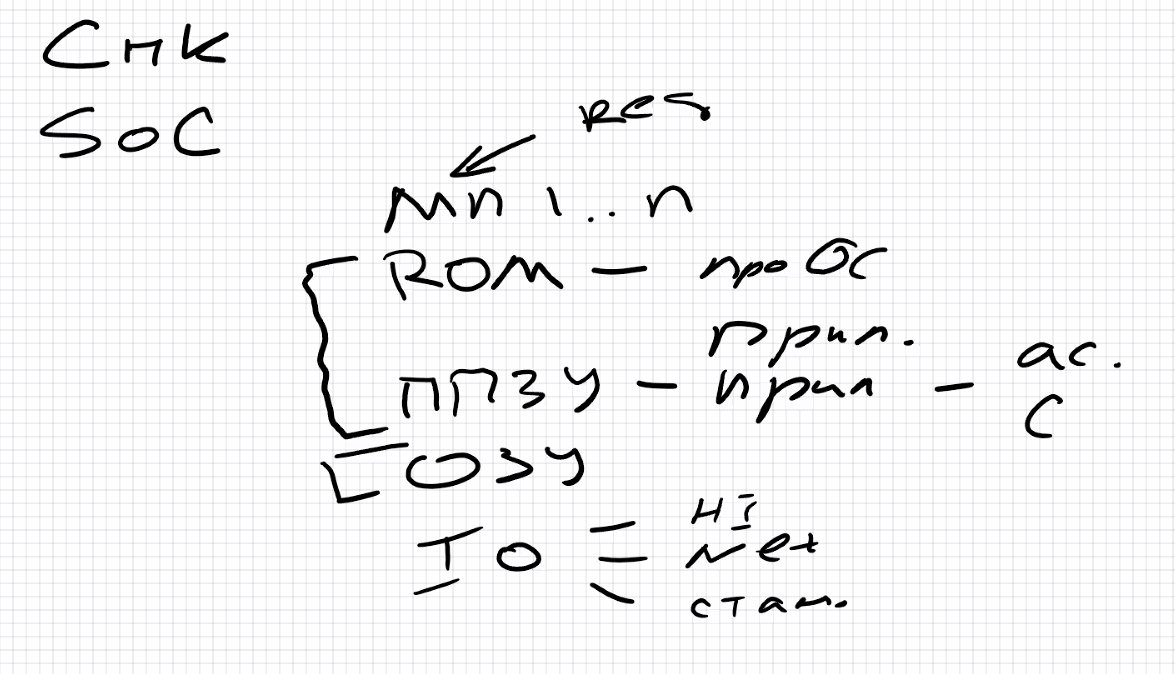 СнК
SoC
res
МП 1..n
ROM — про ОС
прил.
ППЗУ — прил — ас.
С
ОЗУ
IO
HI
Net
стан.